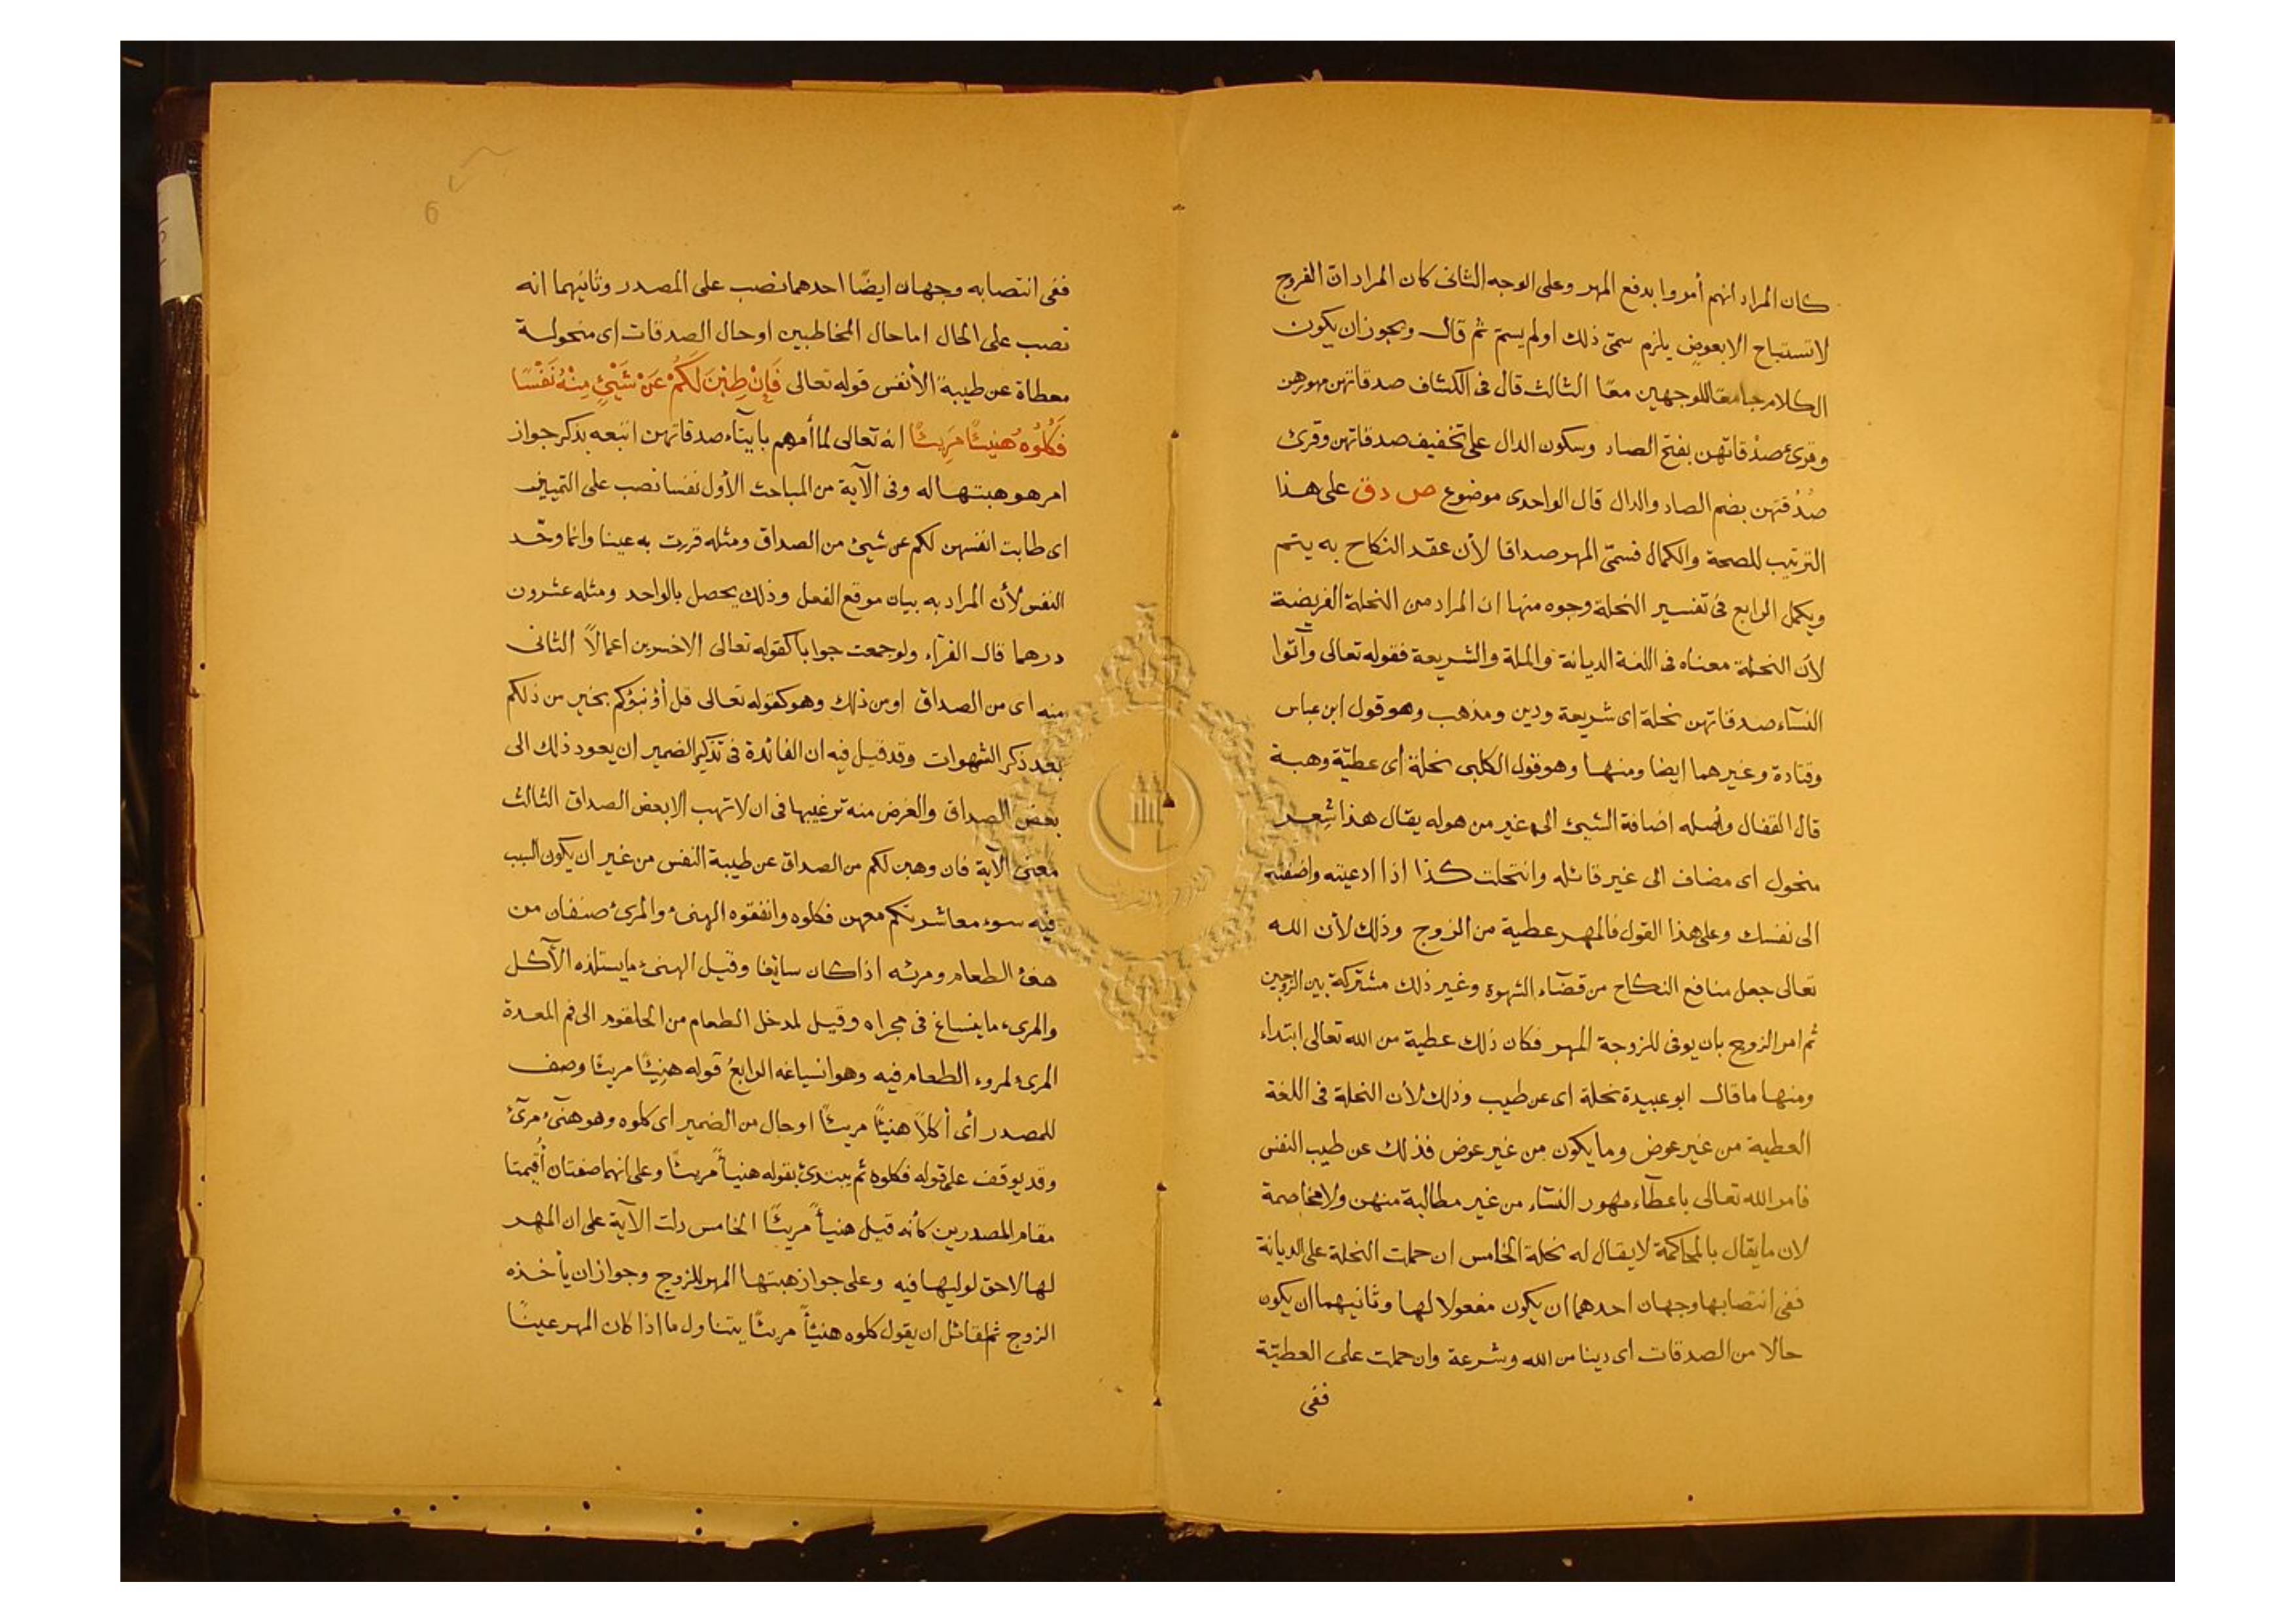 كان المراد انهم أمروا بدفع المهر وعلى الوجه الثانى كان المراد انّ الفروج
لا تستباح الا بعوض يلزم سمّى ذلك او لم يسمّ ثم قال ويجوز ان يكون
الكلام جامعا للوجهين معا الثالث قال فى الكشاف صدقاتهن مهورهن
وقرئ صدْقاتهن بفتح الصاد وسكون الدال على تخفيف صدقاتهن وقرئ
صُدُقتهن بضم الصاد والدال قال الواحدى موضوع ص د ق على هذا
الترتيب للصحة والكمال فسمّى المهر صداقا لأن عقد النكاح به يتم
ويكمل الرابع فى تفسير النحلة وجوه منها ان المراد من النحلة الفريضة
لأن النحلة معناه فى اللغة الديانة والملة والشريعة فقوله تعالى وآتوا
النسآء صدقاتهن نحلة اى شريعة ودين ومذهب وهو قول ابن عباس
وقتادة وغيرهما ايضا ومنها وهو قول الكلبى نحلة اى عطيّة وهبة
قال القفال وأصله اضافة الشيئ الى غير من هو له يقال هذا شِعر
منحول اى مضاف الى غير قائله وانتحلت كذا اذا ادعيته واضفته
الى نفسك وعلى هذا القول فالمهر عطية من الزوج وذلك لأن الله
تعالى جعل منافع النكاح من قضآء الشهوة وغير ذلك مشتركة بين الزوجين
ثم امر الزوج بان يوفى للزوجة المهر فكان ذلك عطية من الله تعالى ابتداء
ومنها ما قال ابو عبيدة نحلة اى عن طيب وذلك لأن النحلة فى اللغة
العطية من غير عوض وما يكون من غير عوض فذلك عن طيب النفس
فامر الله تعالى باعطآء مهور النسآء من غير مطالبة منهن ولا مخاصمة
لان ما يقال بالمحاكمة لا يقال له نحلة الخامس ان حملت النحلة على الديانة
ففى انتصابها وجهان احدهما ان يكون مفعولا لها وثانيهما ان يكون
حالا من الصدقات اى دينا من الله وشرعة وان حملت على العطيّة
ففى
ففى انتصابه وجهان ايضًا احدهما نصب على المصدر وثانيهما انه
نصب على الحال اما حال المخاطبين او حال الصدقات اى منحولة
معطاة عن طيبة الأنفس قوله تعالى فَإِنْ طِبْنَ لَكُمْ عَنْ شَيْئٍ مِنْهُ نَفْسًا
فَكُلُوهُ هَنِيئًا مَرِيئًا انه تعالى لما أمرهم بايتآء صدقاتهن اتبعه بذكر جواز
امر هو هبتها له وفى الآية من المباحث الأول نفسا نصب على التمييز
اى طابت انفسهن لكم عن شيئ من الصداق ومثله قررت به عينا وانما وحّد
النفس لأن المراد به بيان موقع الفعل وذلك يحصل بالواحد ومثله عشرون
درهما قال الفرآء ولو جمعت جوابا كقوله تعالى الاخسرين اعمالاً الثانى
منه اى من الصداق او من ذلك وهو كقوله تعالى قل أؤنبؤكم بخير من ذلكم
بعد ذكر الشهوات وقد قيل فيه ان الفائدة فى تذكير الضمير ان يعود ذلك الى
بعض الصداق والغرض منه ترغيبها فى ان لا تهب الا بعض الصداق الثالث
معنى الآية فان وهبن لكم من الصداق عن طيبة النفس من غير ان يكون السبب
فيه سوء معاشرتكم معهن فكلوه وانفقوه الهنئ والمرئ صنفان من
هنؤ الطعام ومرئه اذا كان سائغا وقيل الهنئ ما يستلذه الآكل
والمرئ ما ينساغ فى مجراه وقيل لمدخل الطعام من الحلقوم الى فم المعدة
المرئ لمروء الطعام فيه وهو انسياغه الرابع قوله هنيئًا مريئًا وصف
للمصدر أى أكلاً هنيئًا مريئًا او حال من الضمير اى كلوه وهو هنئ مرئ
وقد يوقف على قوله فكلوه ثم يبتدئ بقوله هنيأً مريئًا وعلى انهما صفتان أُقيمتا
مقام المصدرين كأنه قيل هنيأً مريئًا الخامس دلت الآية على ان المهر
لها لا حق لوليها فيه وعلى جواز هبتها المهر للزوج وجواز ان يأخذه
الزوج ثم لقائل ان يقول كلوه هنيئاً مريئًا يتناول ما اذا كان المهر عينًا